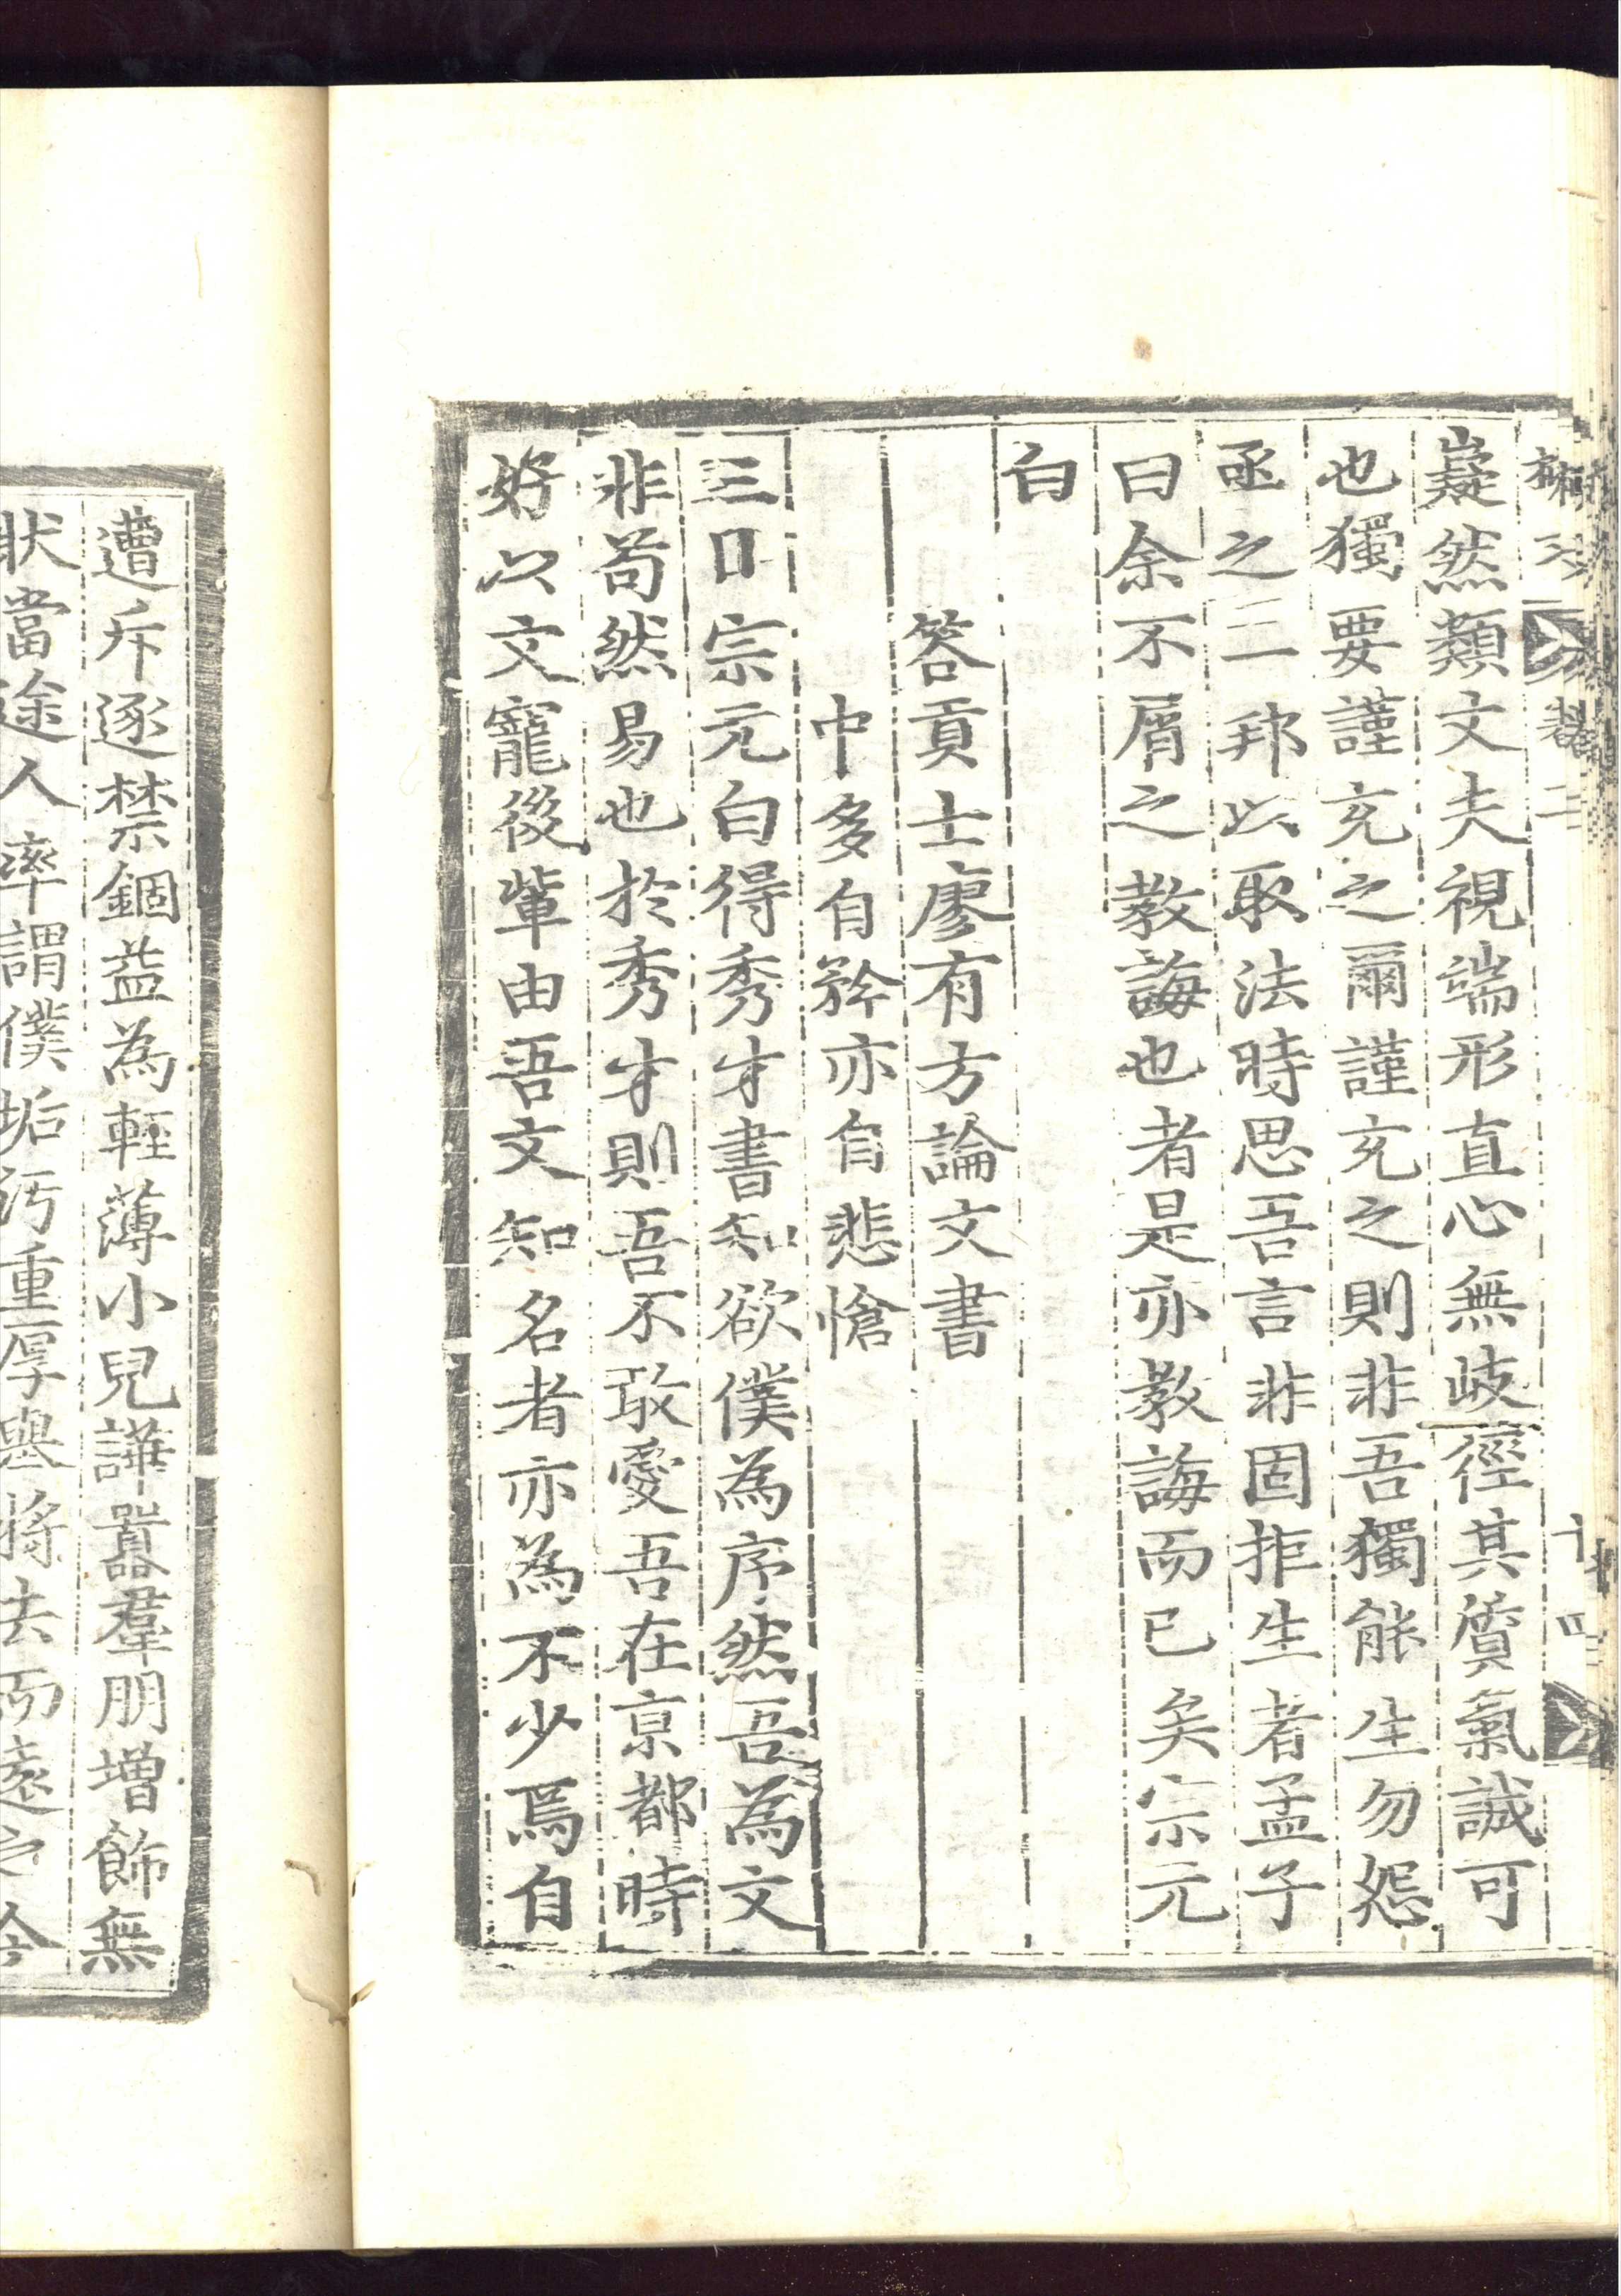 柳文 卷二 十四
嶷然類丈夫視端形直心無歧徑其質氣誠可
也獨要謹充之爾謹充之則非吾獨能生勿怨
亟之二邦以取法時思吾言非固拒生者孟子
曰余不屑之教誨也者是亦教誨而已矣宗元
白
答貢士廖有方論文書
中多自矜亦自悲愴
三口宗元白得秀才書知欲僕為序然吾為文
非苟然易也於秀才則吾不敢愛吾在京都時
好以文寵後輩由吾文知名者亦為不少焉自
遭斥逐禁錮益為輕薄小兒譁囂羣朋增飾無
狀當途人率謂僕垢污重厚舉將去而遠之今